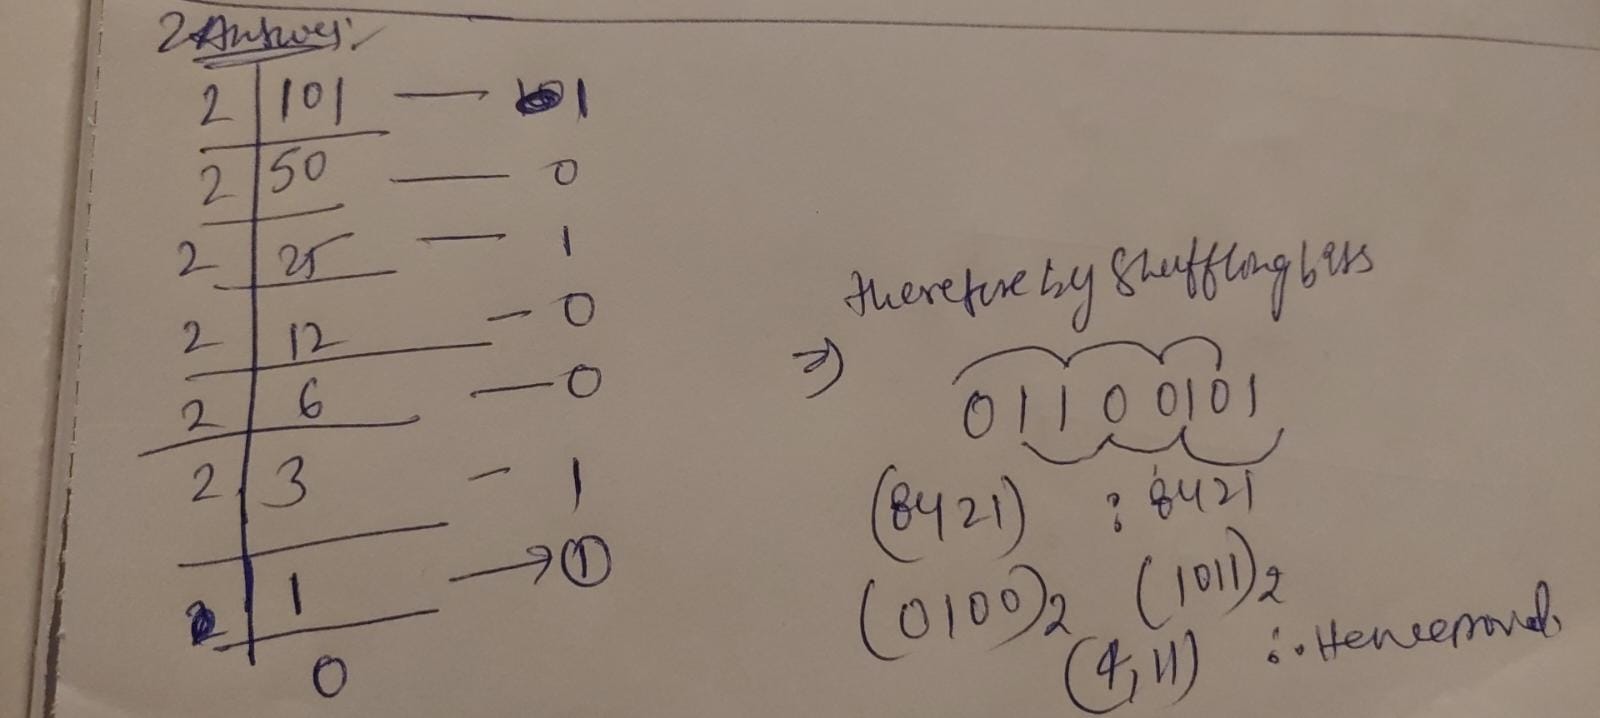 2 Answer:-
2 | 101 — 1
2 | 50 — 0
2 | 25 — 1
2 | 12 — 0
2 | 6 — 0
2 | 3 — 1
2 | 1 → 1
0
therefore by shuffling bits
⇒ 01100101
(8421) : 8421
(0100)2 (1011)2
(4,11) ∴ Hence proved.